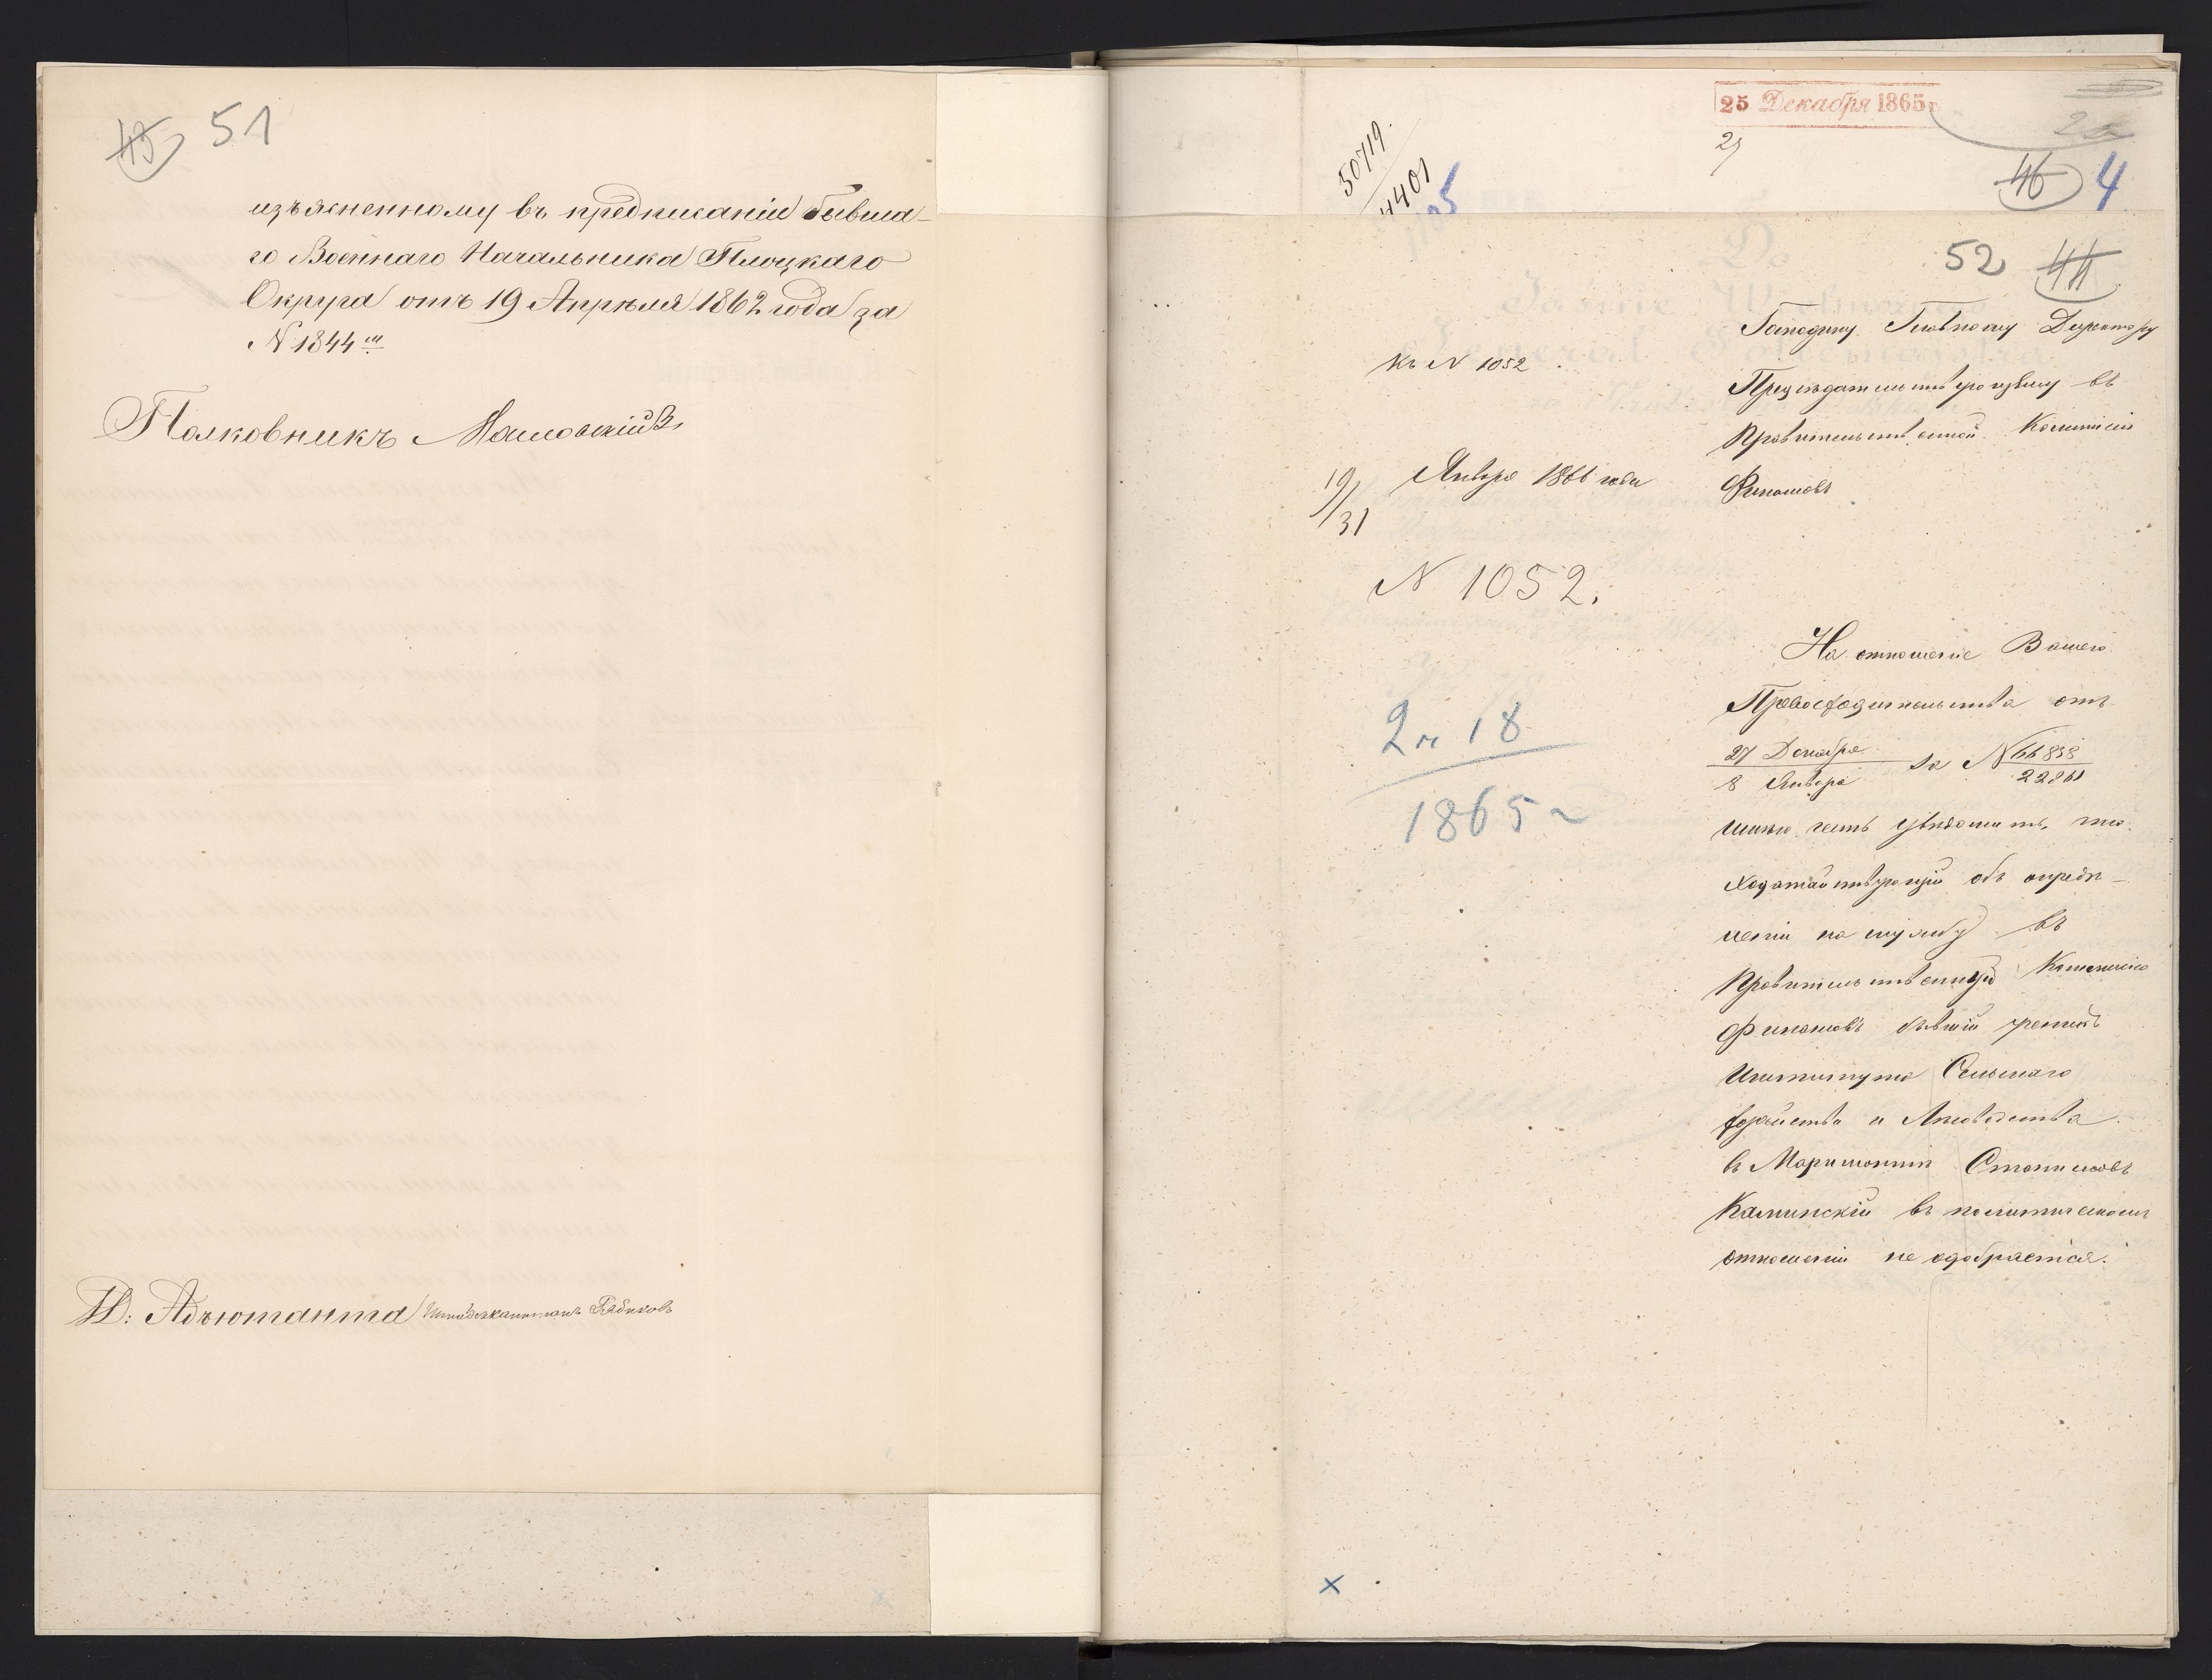 51
изъясненному въ предписаніи бывша-
го Военнаго Начальника Плоцкаго
Округа отъ 19 Апрѣля 1862 года за
№ 1844
Полковникъ
Адъютанта Штабсъ-капитанъ
25 Декабря 1865 г
50719
4401
46 4
52 44
къ № 1052
Господину Главному Директору
Предсѣдательствующему въ
Правительственной Коммисіи
Финансовъ
19/31 Января 1866 года
№ 1052.
2 18
1865
На отношеніе Вашего
Превосходительства отъ
27 Декабря
8 Января
за № 66838
22861
имѣю честь увѣдомить, что
ходатайствующій объ опредѣ-
леніи на службу въ
Правительственную Коммисію
Финансовъ бывшій ученикъ
Института Сельскаго
хозяйства и Лѣсоводства
въ Маримонтѣ Станиславъ
Каминскій въ политическомъ
отношеніи не одобряется.